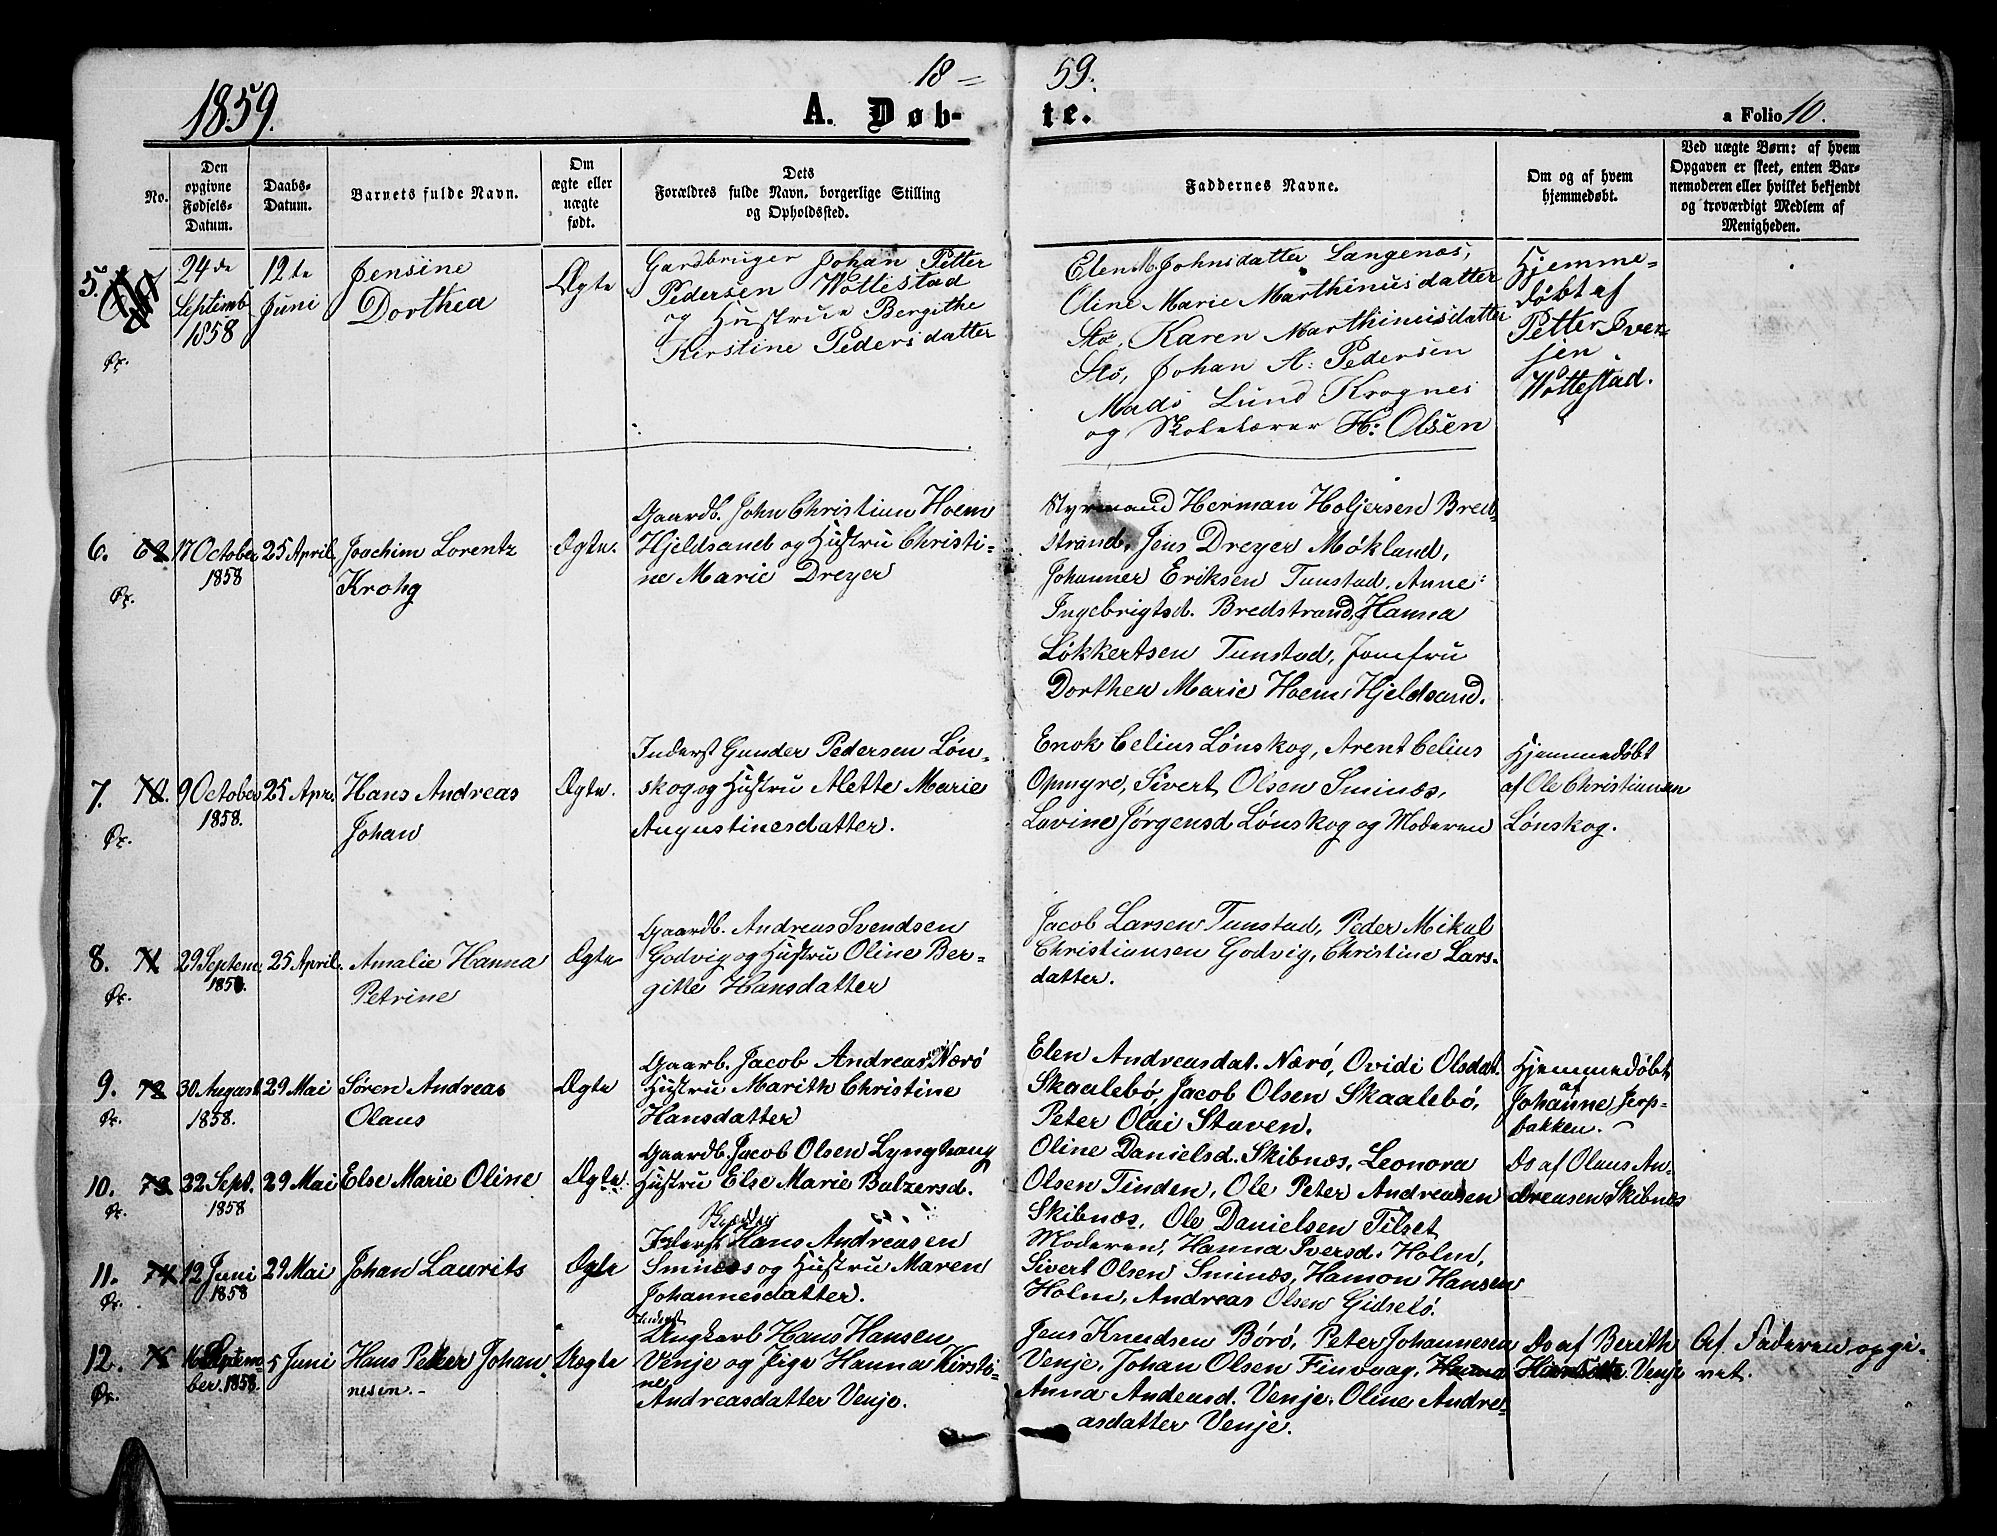 18 = 59.
1859.
A. Døb- te.
a Folio 10.
No.
Den opgivne Fødsels-Datum.
Daabs-Datum.
Barnets fulde Navn.
Om ægte eller uægte født.
Dets Forældres fulde Navn, borgerlige Stilling og Opholdssted.
Faddernes Navne.
Om og af hvem hjemmedøbt.
Ved uægte Børn: af hvem Opgaven er skeet, enten Barnemoderen eller hvilket bekjendt og troværdigt Medlem af Menigheden.
5.
24de
Septemb
1858
12te
Juni
Jensine
Dorthea
Ægte
Gardbruger Johan Petter
Pedersen Wottestad
og Hustrue Bergithe
Kirstine Pedersdatter
Elen M. Johnsdatter Langenæs,
Oline Marie Marthinusdatter
Stø, Karen Marthinusdatter
Stø, Johan A: Pedersen
Mads Lund Krognes
og Skolelærer H: Olsen
Hjemme-
døbt af
Petter Iver-
sen
Wottestad.
6.
17 October
1858
25 April
Joachim Lorentz
Krohg
Ægte.
Gaardb. John Christian Hoem
Hjeldsand og Hustru Christi-
ne Marie Dreyer
Styrmand Herman Holjersen Bred-
strand, Jens Dreyer Møkland,
Johanner Eriksen Tunstad, Anne
Ingebrigtsd. Bredstrand, Hanna
Løkkertsen Tunstad, Jomfru
Dorthea Marie Hoem, Hjeldsand.
7.
70.
9 October
1858.
25 Apr.
Hans Andreas
Johan
Ægte.
Inderst Gunder Pedersen Løn-
skog og Hustru Alette Marie
Augustinesdatter.
Enok Celius Lønskog, Arent Celius
Opmyre, Sivert Olsen Sminæs,
Lavine Jørgensd Lønskog og Moderen
Hjemmedøbt
af Ole Christiansen
Lønskog.
8.
71
29 Septem.
1858.
25 April.
Amalie Hanna
Petrine
Ægte
Gaardb. Andreas Svendsen
Godvig og Hustru Oline Ber-
gitte Hansdatter
Jacob Larsen Tunstad, Peder Mikal
Christiansen Godvig, Christine Lars-
datter.
9.
72
30 August
1858.
29 Mai
Søren Andreas
Olaus
Ægte
Gaarb. Jacob Andreas Nærø
Hustru Marith Christine
Hansdatter
Elen Andreasdat. Nærø, Ovidi Olsdat.
Skaalebø, Jacob Olsen Skaalebø,
Peter Olai Staven.
Hjemmedøbt
af
Johanne Jerp-
bakken.
10.
73
22 Sept.
1858
29 Mai
Else Marie Oline
Ægte
Gaardb. Jacob Olsen Lynghaug
Hustru Else Marie Balzersd.
Oline Danielsd. Skibnæs, Leonora
Olsen Tinden, Ole Peter Andreasen
Skibnæs, Ole Danielsen Tilset
Ds af Olaus An-
dreasen Skibnæs
11.
74
12 Juni
1858
29 Mai
Johan Laurits
Ægte
Inderst Hans Andreasen
Sminæs og Hustru Maren
Johannesdatter.
Moderen, Hanna Iversd. Holm,
Sivert Olsen Sminæs, Hamon Hansen
Holm, Andreas Olsen Gidselø.
12.
75
16 Septem
ber. 1858.
5 Juni
Hans Peter Johan
nesen.
Uægte
Inderst
Ungkarl Hans Hansen
Venje og Pige Hanna Kirsti-
ne
Andreasdatter Venje.
Jens Knudsen Børø, Peter Johannesen
Venje, Johan Olsen Finvaag,
Anna Andeasd. Venje, Oline Andre-
asdatter Venje.
Ds af Berith
Venje
Af Faderen opgi-
vet.